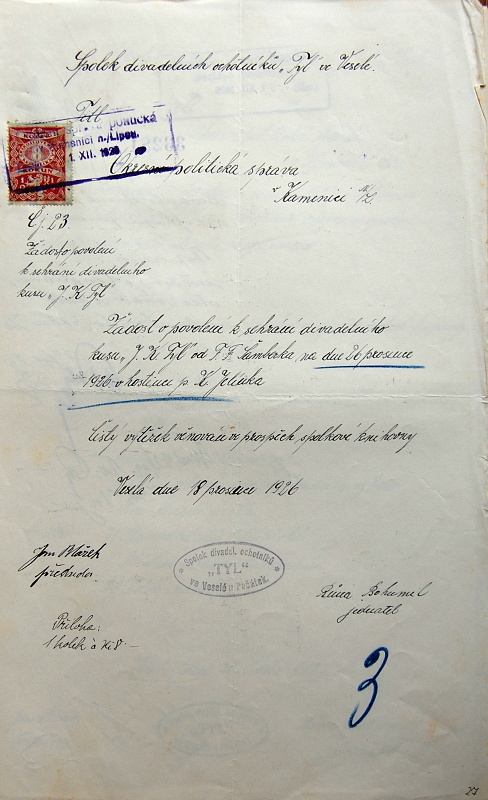 Spolek divadelních ochotníků „Tyl" ve Veselé.
Tit
politická
Kamenici n./Lipou.
1. XII. 1926
Okresní politická správa
v Kamenici n/L.
Čj. 23.
Žádost o povolení
k sehrání divadelního
kusu „J. K. Tyl"
Žádost o povolení k sehrání divadelního
kusu „J. K. Tyl" od F. F. Šamberka, na dne 26 prosence
1926 v hostinci p. Jelínka
Čistý výtěžek věnován ve prospěch spolkové knihovny
Veselá dne 18 prosence 1926
Jan Blažek
předseda.
Spolek divadel. ochotníků
„TYL"
ve Veselé u Počátek.
Růna Bohumil
jednatel
Příloha:
1 kolek à Kč 5.—
3
27